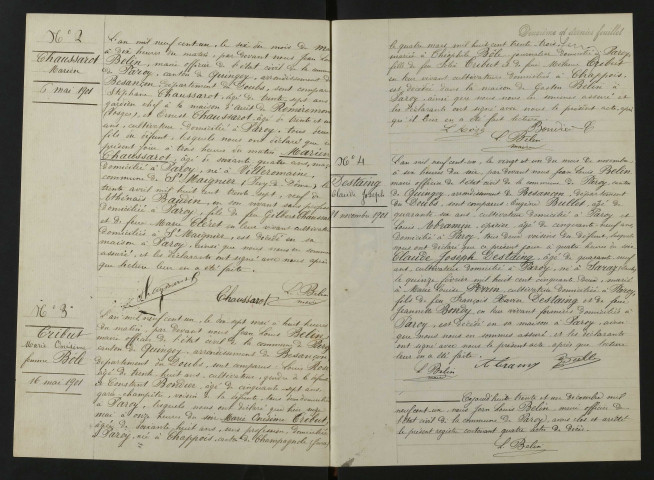 N° 2
Chaussarot
Marien
6 mai 1901
L'an mil neuf cent un, le six du mois de mai
à dix heures du matin, par devant nous Jean Louis
Belin, maire officier de l'état civil de la commune
de Paroy, canton de Quingey, arrondissement de
Besançon, département du Doubs, sont comparus
Stéphane Chaussarot, âgé de trente sept ans
gardien chef à la maison d'arrêt de Remiremont
(Vosges), et Ernest Chaussarot, âgé de trente et un
ans, cultivateur domicilié à Paroy, tous deux
fils du défunt, lesquels nous ont déclaré que ce
présent jour à trois heures du matin Marien
Chaussarot, âgé de soixante quatre ans,
domicilié à Paroy, né à Villeromaine,
commune de St Maignier, (Puy de Dôme), le
trente avril mil huit cent trente sept, veuf de
Baudin, en son vivant
domiciliée à Paroy, fils de feu Gilbert Chaussarot
et de feue Marie en leur vivant cultivateurs
domiciliés à St Maignier, est décédé en sa
maison à Paroy, ainsi que nous nous en sommes
assuré, et les déclarants ont signé avec nous après
que lecture leur en a été faite.
Chaussarot L. Belin
N° 3
Trébut
Marie Cousine
femme Bôle
16 mai 1901
L'an mil neuf cent un, le dix sept mai à huit heures
du matin, par devant nous Jean Louis Belin,
maire officier de l'état civil de la commune de Paroy
canton de Quingey, arrondissement de Besançon,
département du Doubs, sont comparus Louis
âgé de trente huit ans, cultivateur,
et Constant Bondier, âgé de cinquante sept ans
garde champêtre, voisin de la défunte, tous deux domiciliés
à Paroy, lesquels nous ont déclaré que hier seize
mai à onze heures du soir Marie Trébut,
âgée de soixante huit ans, sans profession, domiciliée
à Paroy, née à Chappois, canton de Champagnole (Jura)
Deuxième et dernier feuillet
le quatre mars mil huit cent trente trois,
mariée à Théophile Bôle, journalier domicilié à Paroy,
fille de feu Trébut et de feue Trébut
en leur vivant cultivateurs domiciliés à Chappois,
est décédée dans la maison de Gaston Belin à
Paroy, ainsi que nous nous en sommes assuré et
les déclarants ont signé avec nous le présent acte après
que lecture leur en a été faite.
L. Belin
maire
N° 4
Destaing
Claude Joseph
21 novembre 1901
L'an mil neuf cent un, le vingt et un du mois de novembre
à six heures du soir, par devant nous Jean Louis Belin
maire officier de l'état civil de la commune de Paroy, canton
de Quingey, arrondissement de Besançon, département
du Doubs, sont comparus Eugène Baillet, âgé de
quarante six ans, cultivateur domicilié à Paroy et
Louis Abramin, épicier, âgé de cinquante neuf ans
domicilié à Paroy, tous deux voisins du défunt, lesquels
nous ont déclaré que ce présent jour à quatre heures du soir
Claude Joseph Destaing, âgé de quarante neuf
ans, cultivateur domicilié à Paroy, né à Paroy
le quinze février mil huit cent cinquante deux, marié
à Marie Louise Perrin, cultivatrice domiciliée à Paroy,
fils de feu François Xavier Destaing et de feue
Jeannette Bondy, en leur vivant fermiers domiciliés à
Paroy, est décédé en sa maison à Paroy, ainsi
que nous nous en sommes assuré, et les déclarants
ont signé avec nous le présent acte après que lecture
leur en a été faite.
L. Belin
Aujourd'hui trente et un décembre mil
neuf cent un, nous Jean Louis Belin, maire officier de
l'état civil de la commune de Paroy, avons clos et arrêté
le présent registre contenant quatre actes de décès.
L. Belin